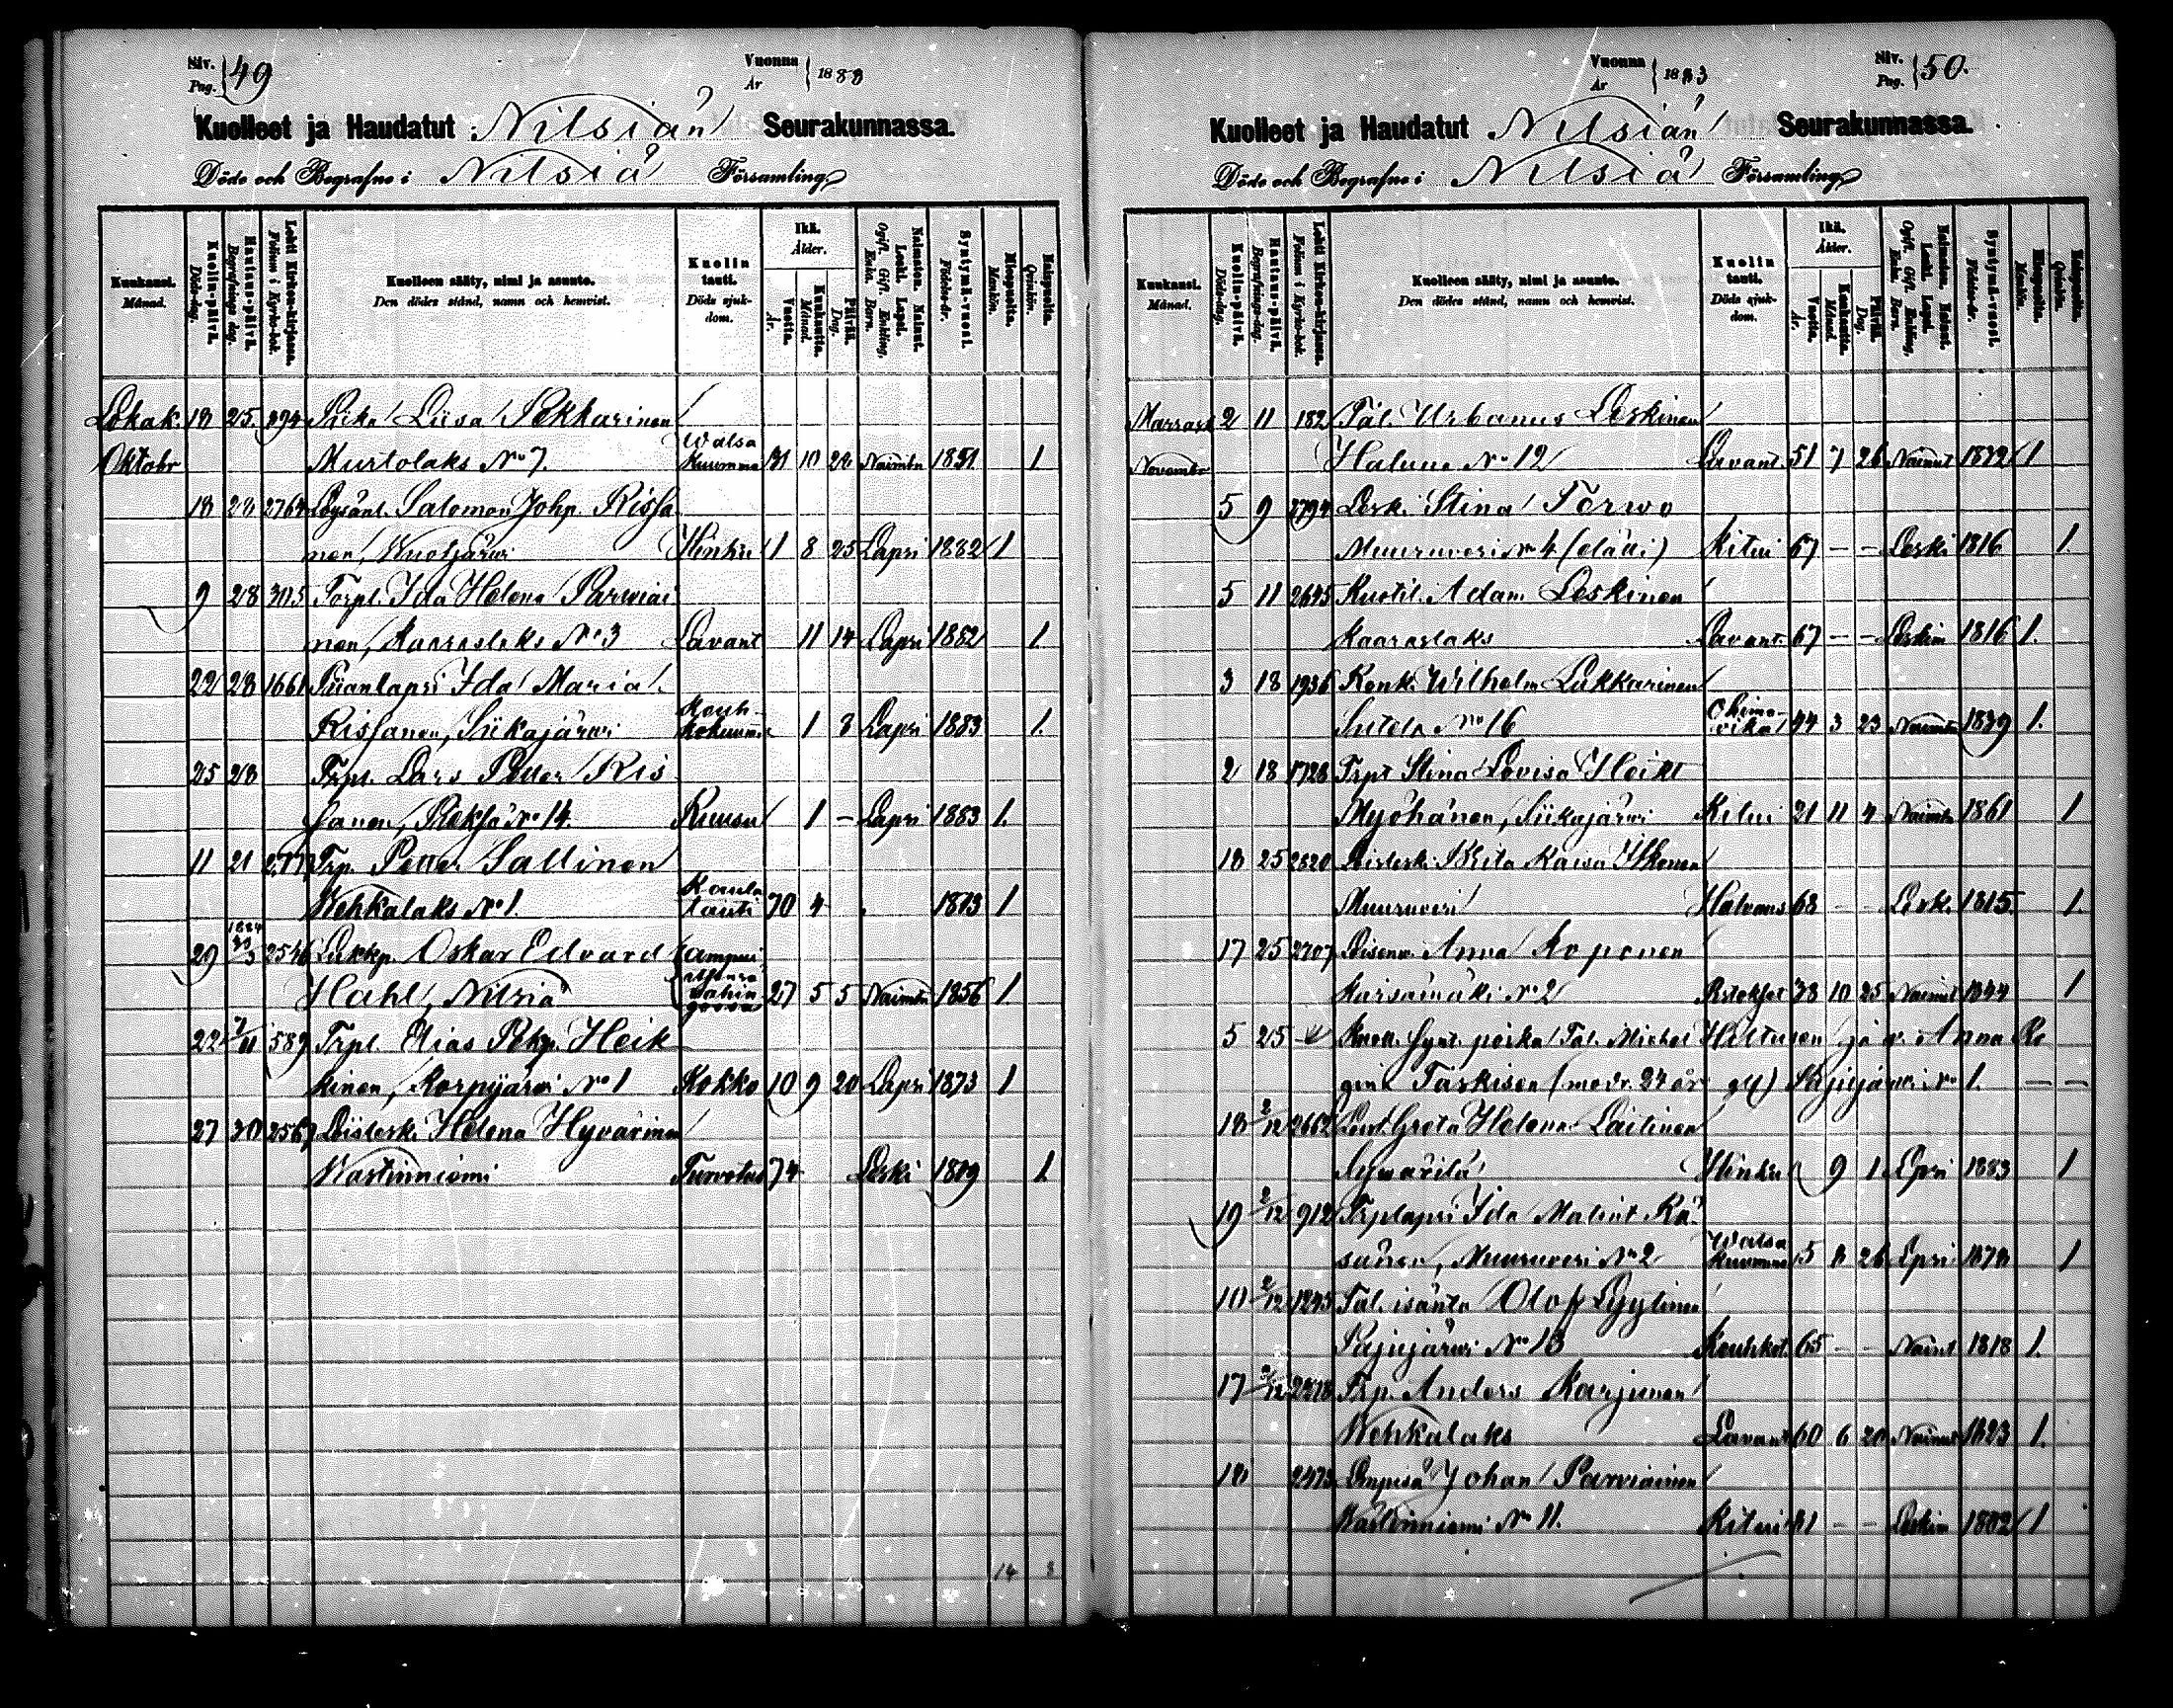 Siv. Pag. 49
Vuonna År 1883
Kuolleet ja Haudatut Nilsiän Seurakunnassa.
Döde och Begrafne i Nilsiä Församling
Kuukausi. Månad.
Kuolin-päivä. Döds-dag.
Hautaus-päivä. Begrafnings dag.
Lehti Kirkon-kirjassa. Folium i Kyrko-bok.
Kuolleen sääty, nimi ja asunto.
Den dödes stånd, namn och hemvist.
Kuolin tauti. Döds sjuk-dom.
Ikä. Ålder.
Vuotta. År.
Kuukautta. Månad.
Päivää. Dag.
Naimaton. Nainut. Leski. Lapsi.
Ogift. Gift. Enkling. Enka. Barn.
Syntymä-vuosi. Födelse-år.
Miespuolia. Mankön.
Vaispuolia. Qvinkön.
Lokak. 18 25. 894 Piika Liisa Pekkarinen
Oktobr Murtolaks No 7. Watsa kuumme 31 10 28 Naimtn 1851 1
18 28 2764 Loysänl. Salomon Johp. Rissa
nen, Wuotjärwi Hinku 1 8 25 Lapsi 1882 1
9 28 305 Torpl. Ida Helena Parwiai
nen, Kaaraslaks No 3 Lavant 11 14 Lapsi 1882 1.
22 28 1661 Piianlapsi Ida Maria
Rissanen, Siikajärwi Keuh-kokuume 1 8 Lapsi 1883 1.
25 28 Trpl. Lars Petter Ris
sanen, Pieksä No 14. Ruusu 1 - Lapsi 1883 1.
11 21 2777 Trp. Petter Sallinen
Wehkalaks No 1. Kaula tauti 70 4 1813 1
29 1884 2546 Lukkp. Oskar Edvard ampui
Hahl, Nilsiä 27 5 5 Naimtn 1856 1.
22 7/11 589 Trpl. Elias Pehp. Heik
kinen, Korpijärwi No 1 Kokko 10 9 20 Lapsi 1873 1
27 30 2567 Loislesk. Helena Hyvärinen
Wastinniemi Turvotus 74 Leski 1809 1.
14 8
Vuonna År 1883
Siv. Pag. 50.
Kuolleet ja Haudatut Nilsiän Seurakunnassa.
Döde och Begrafne i Nilsiä Församling
Kuukausi. Månad.
Kuolin-päivä. Döds-dag.
Hautaus-päivä. Begrafnings-dag.
Lehti Kirkon-kirjassa. Folium i Kyrko-bok.
Kuolleen sääty, nimi ja asunto.
Den dödes stånd, namn och hemvist.
Kuolin tauti. Döds sjuk-dom.
Ikä. Ålder.
Vuotta. År.
Kuukautta. Månad.
Päivää. Dag.
Naimaton. Nainut. Leski. Lapsi.
Ogift. Gift. Enkling. Enka. Barn.
Syntymä-vuosi. Födelse-år.
Miespuolia. Mankön.
Vaispuolia. Qvinkön.
Marrask 2 11 182 Tal. Urbanus Leskinen
Novembr Haluna No 12 Lavant. 51 7 26 Nainut 1832 1
5 9 2794 Lesk. Stina Torwo
Muuruvesi No 4 (eläti) Kitui 67 - - Leski 1816 1.
5 11 2645 Kuotil. Adam Leskinen
Kaaraslaks Lavant. 67 - - Leskim 1816 1.
3 18 1936 Renk. Wilhelm Lukkarinen
Sutela No 16 44 3 23 Naimtn 1839 1.
2 18 1728 Trpt Stina Lovisa Heikt
Myöhänen, Siikajärwi Kitui 21 11 4 Naimtn 1861 1
18 25 2820 Loislesk. Brita Kaisa
Muuruvesi Halvaus 68 - - Lesk. 1815 1.
17 25 2707 Loisenv. Anna Koponen
Karsamäki No 2 38 10 25 Nainut 1844 1
5 25 Kuoll. synt. poika Tal. Michel Hiltusen ja v. Anna Re
gina Taskisen (modr. 24 år gl) No 1. - -
18 2/12 2662 Greta Helena Laitinen
Hinku 9 1 Lpsi 1883 1
19 2/12 912 Trplapsi Ida Malint Rä
sänen, Muuruvesi No 2 Watsa kuumme 5 8 26 Lpsi 1878 1
10 2/12 1245 Tal. isäntä Olof Lyytinen
Pajujärwi No 13 Keuhkot. 65 - - Naint 1818 1.
17 2/12 Trp. Anders Karjunen
Wehkalaks Lavant 60 6 20 Nainut 1823 1.
18 2473 Johan Parviainen
Wastinniemi No 11. Kitui 81 - - Leskim 1802 1